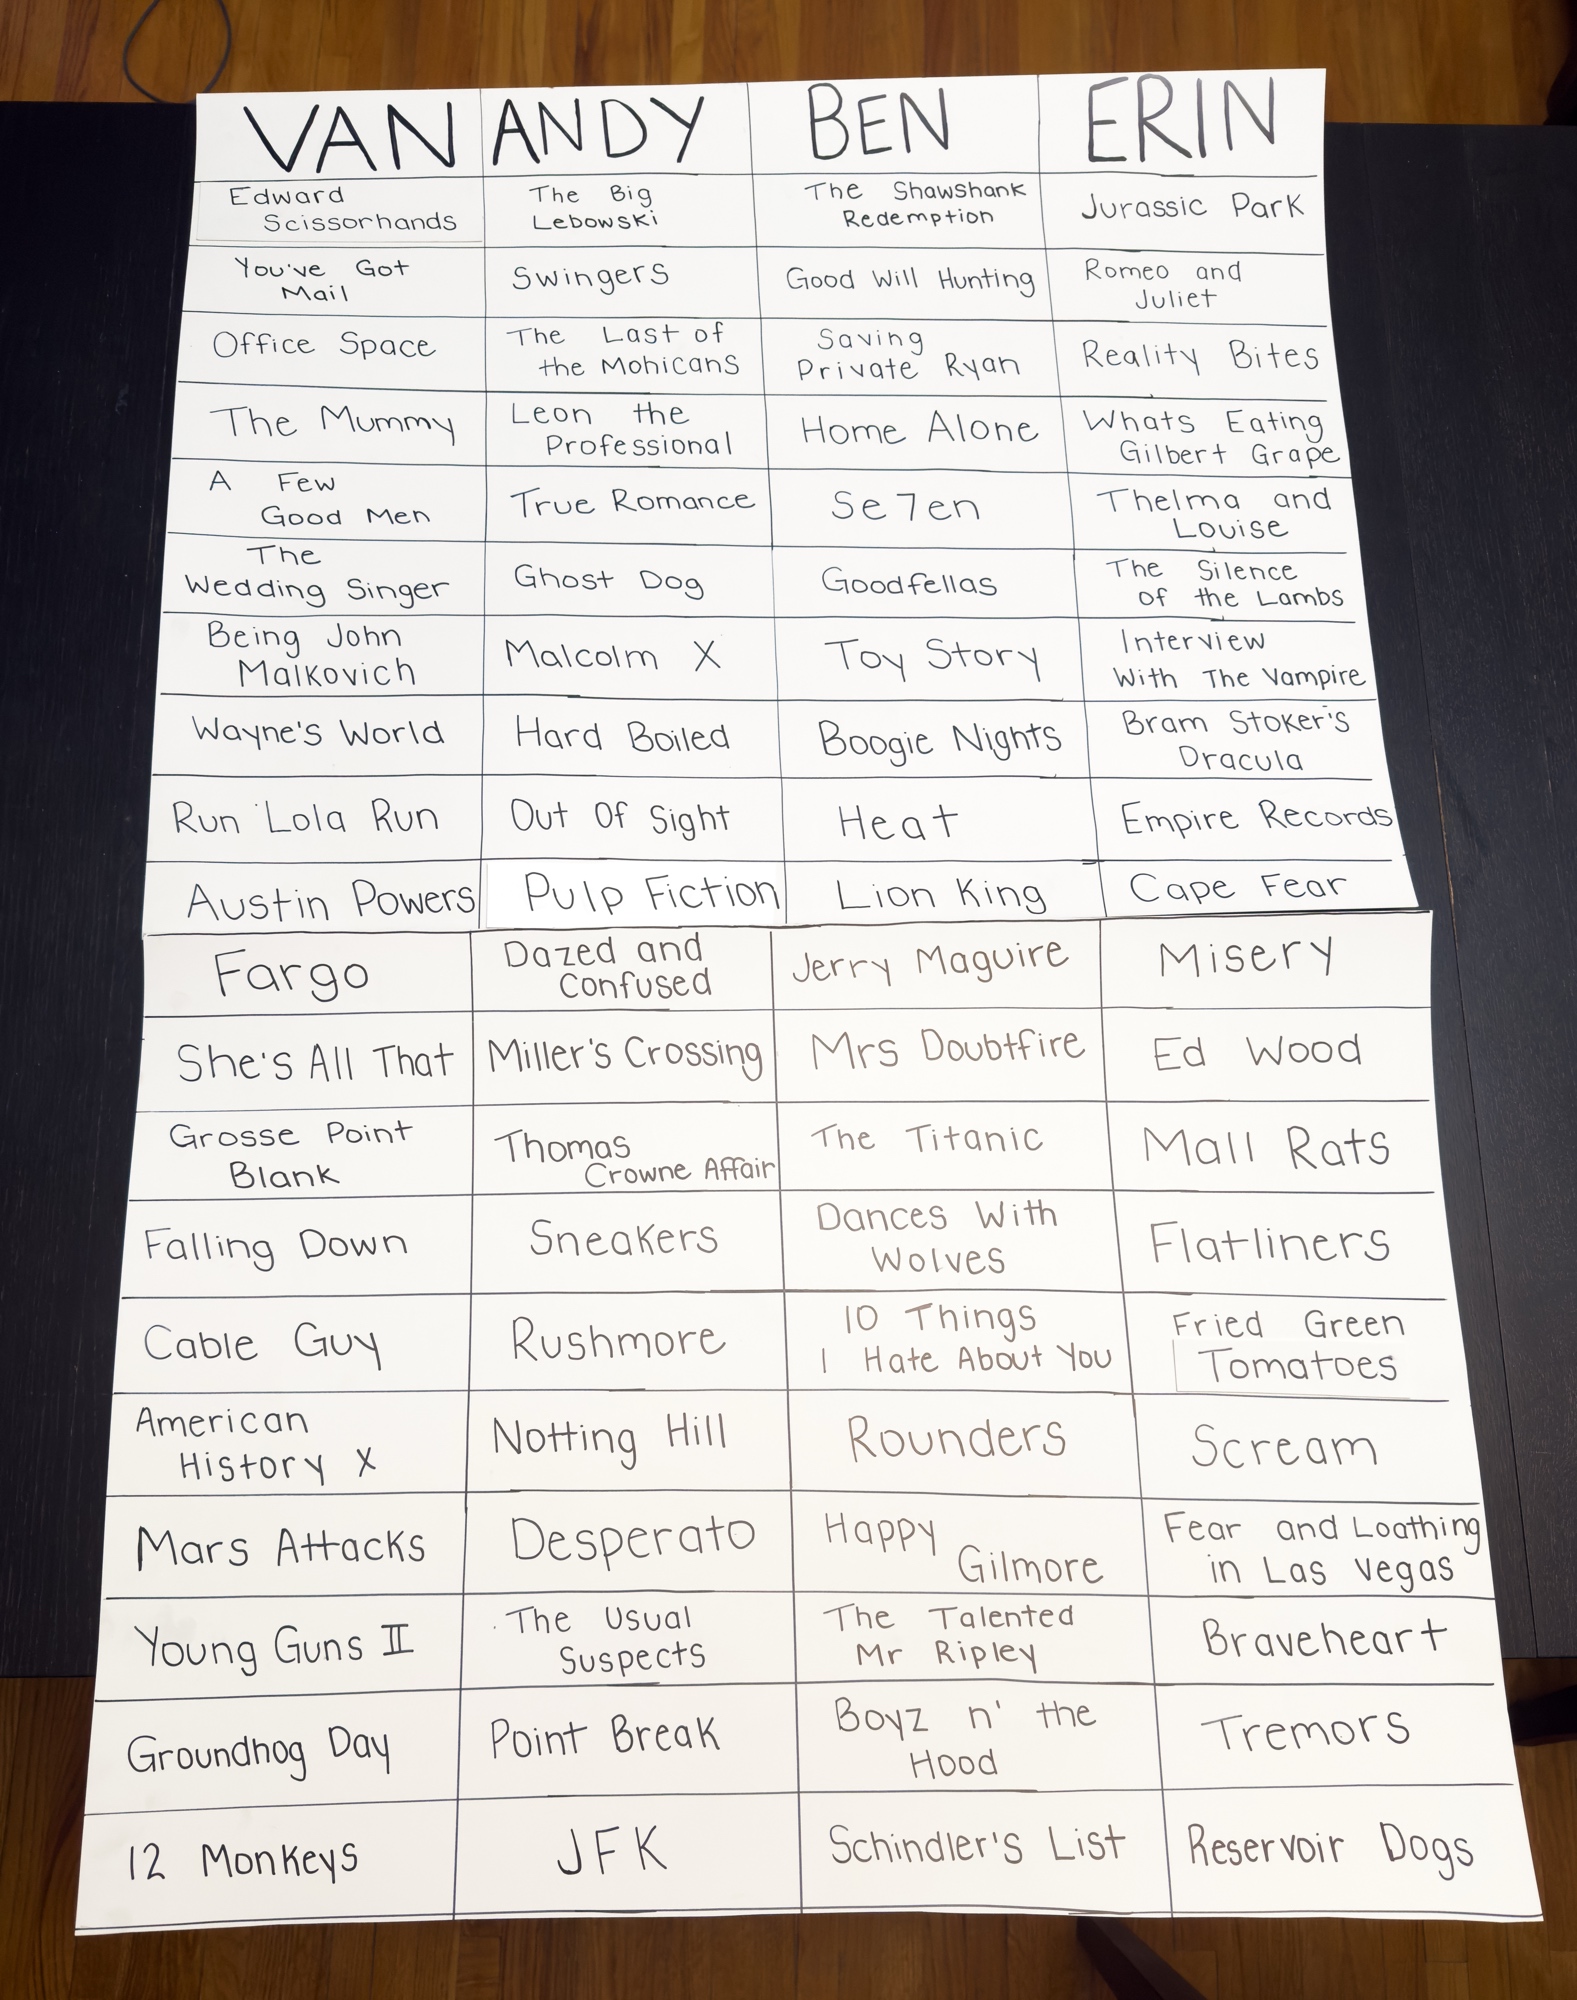 VAN ANDY BEN ERIN
Edward
Scissorhands
The Big
Lebowski
The Shawshank
Redemption
Jurassic Park
You've Got
Mail
Swingers
Good Will Hunting
Romeo and
Juliet
Office Space
The Last of
the Mohicans
Saving
Private Ryan
Reality Bites
The Mummy
Leon the
Professional
Home Alone
Whats Eating
Gilbert Grape
A Few
Good Men
True Romance
Se7en
Thelma and
Louise
The
Wedding Singer
Ghost Dog
Goodfellas
The Silence
of the Lambs
Being John
Malkovich
Malcolm X
Toy Story
Interview
With The Vampire
Wayne's World
Hard Boiled
Boogie Nights
Bram Stoker's
Dracula
Run Lola Run
Out Of Sight
Heat
Empire Records
Austin Powers
Pulp Fiction
Lion King
Cape Fear
Fargo
Dazed and
Confused
Jerry Maguire
Misery
She's All That
Miller's Crossing
Mrs Doubtfire
Ed Wood
Grosse Point
Blank
Thomas
Crowne Affair
The Titanic
Mall Rats
Falling Down
Sneakers
Dances With
Wolves
Flatliners
Cable Guy
Rushmore
10 Things
I Hate About You
Fried Green
Tomatoes
American
History X
Notting Hill
Rounders
Scream
Mars Attacks
Desperato
Happy
Gilmore
Fear and Loathing
in Las Vegas
Young Guns II
The Usual
Suspects
The Talented
Mr Ripley
Braveheart
Groundhog Day
Point Break
Boyz n' the
Hood
Tremors
12 Monkeys
JFK
Schindler's List
Reservoir Dogs